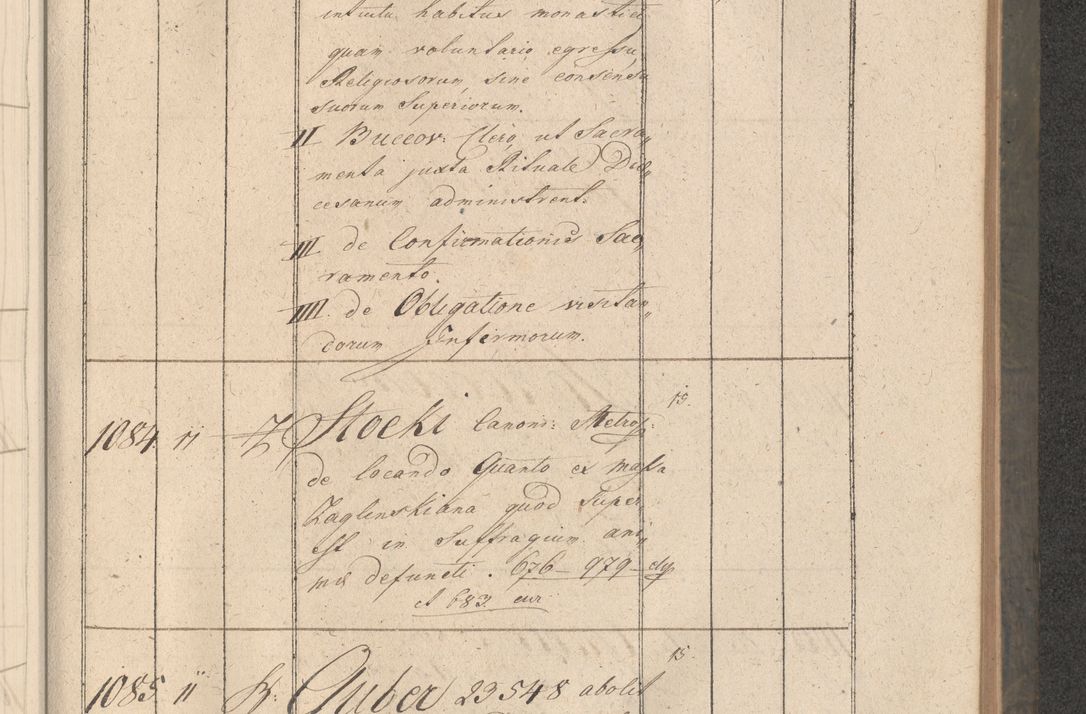 intuitu habitus monastici
quam voluntario egressu
Religiosorum sine consensu
suorum Superiorum.
II Buccov: Clero, ut Sacra„
menta juxta Rituale Dioe„
cesanum administrent.
III de Confirmationis Sac„
ramento.
IIII. de Obligatione visitan„
dorum Infirmorum.
15.
1084 11 Z Stocki Canoni: Metrop:
de locando Quanto ex Massa
Zaglenskiana quod super„
est in suffragium ani„
mis defuncti. 676 – 979
et 683. cur
15.
1085 11 Guber 23548 abolit